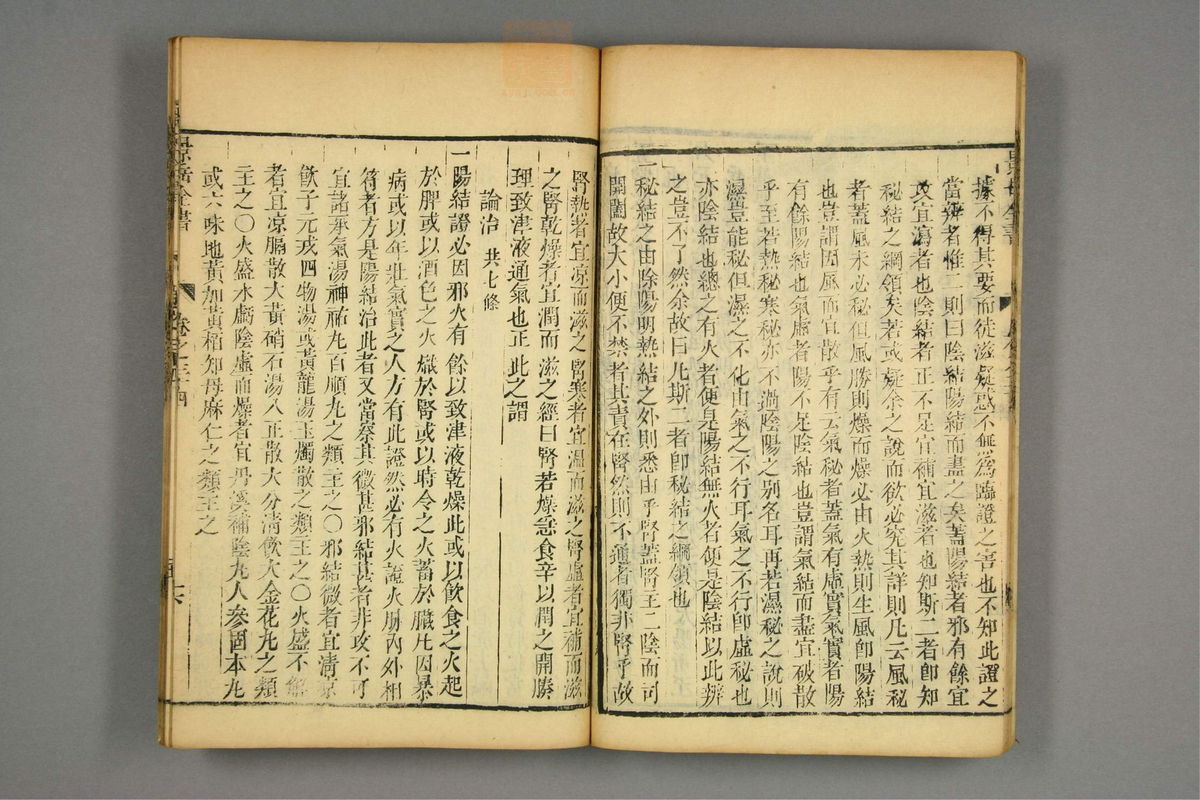 據不得其要而徒滋疑惑不無為臨證之害也不知此證之
當辨者惟二則曰陰結陽結而盡之矣蓋陽結者邪有餘宜
攻宜瀉者也陰結者正不足宜補宜滋者也知斯二者卽知
秘結之綱領矣若或疑余之說而欲必究其詳則凡云風秘
者蓋風未必秘但風勝則燥而燥必由火熱則生風卽陽結
也豈謂因風而宜散乎有云氣秘者蓋氣有虛實氣實者陽
有餘陽結也氣虛者陽不足陰結也豈謂氣結而盡宜破散
乎至若熱秘寒秘亦不過陰陽之別名耳再若濕秘之說則
濕豈能秘但濕之不化由氣之不行耳氣之不行卽虛秘也
亦陰結也總之有火者便是陽結無火者便是陰結以此辨
之豈不了然余故曰凡斯二者卽秘結之綱領也
一秘結之由除陽明熱結之外則悉由乎腎蓋腎主二陰而司
開闔故大小便不禁者其責在腎然則不通者獨非腎乎故
腎熱者宜凉而滋之腎寒者宜溫而滋之腎虛者宜補而滋
之腎乾燥者宜潤而滋之經曰腎苦燥急食辛以潤之開腠
理致津液通氣也正此之謂
論治 共七條
一陽結證必因邪火有餘以致津液乾燥此或以飲食之火起
於脾或以酒色之火熾於腎或以時令之火蓄於臟凡因暴
病或以年壯氣實之人方有此證然必有火證火脈內外相
符者方是陽結治此者又當察其微甚邪結甚者非攻不可
宜諸承氣湯神祐丸百順丸之類主之〇邪結微者宜清凉
飲子元戎四物湯或黃龍湯玉燭散之類主之〇火盛不解
者宜凉膈散大黃硝石湯八正散大分清飲大金花丸之類
主之〇火盛水虧陰虛而燥者宜丹溪補陰丸人參固本丸
或六味地黃加黃栢知母麻仁之類主之
景岳全書
卷之三十四
六